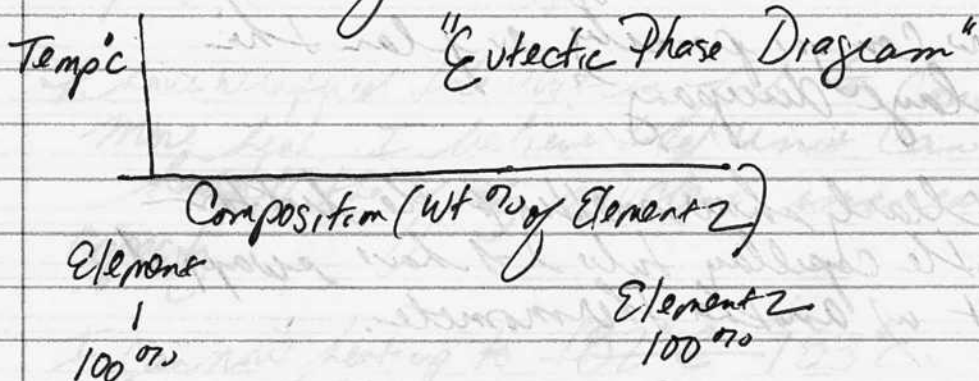 Temp°C "Eutectic Phase Diagram"
Composition (Wt % of Element 2)
Element
1
100 %
Element 2
100 %